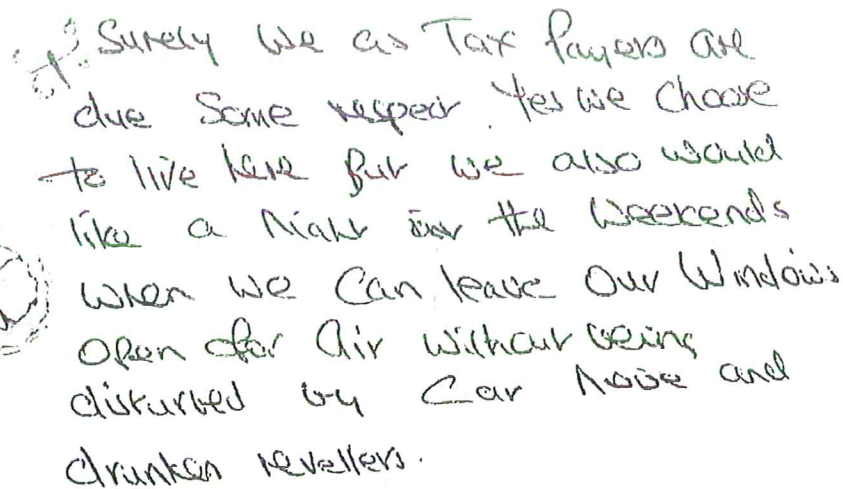 Surely we as Tax Payers are
due some respect. Yes we choose
to live here but we also would
like a Night in the Weekends
when we can leave our Windows
open for air without being
disturbed by Car noise and
drunken revellers.